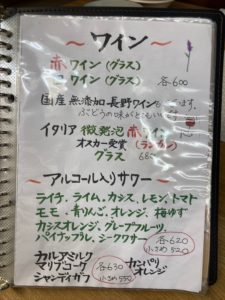 ～ワイン～
赤ワイン(グラス)
ワイン(グラス) 各600
国産無添加長野ワイン
ぶどうの味が
イタリア 微発泡 赤
オスカー受賞
グラス
～アルコール入りサワー～
ライチ、ライム、カシス、レモン、トマト
モモ、青りんご、オレンジ、梅ゆず
カシスオレンジ、グレープフルーツ、
パイナップル、シークワサー 各620
小さめ520
カルアミルク カンパリ
マリブコーク 各630 オレンジ
シャンディガフ 小さめ550